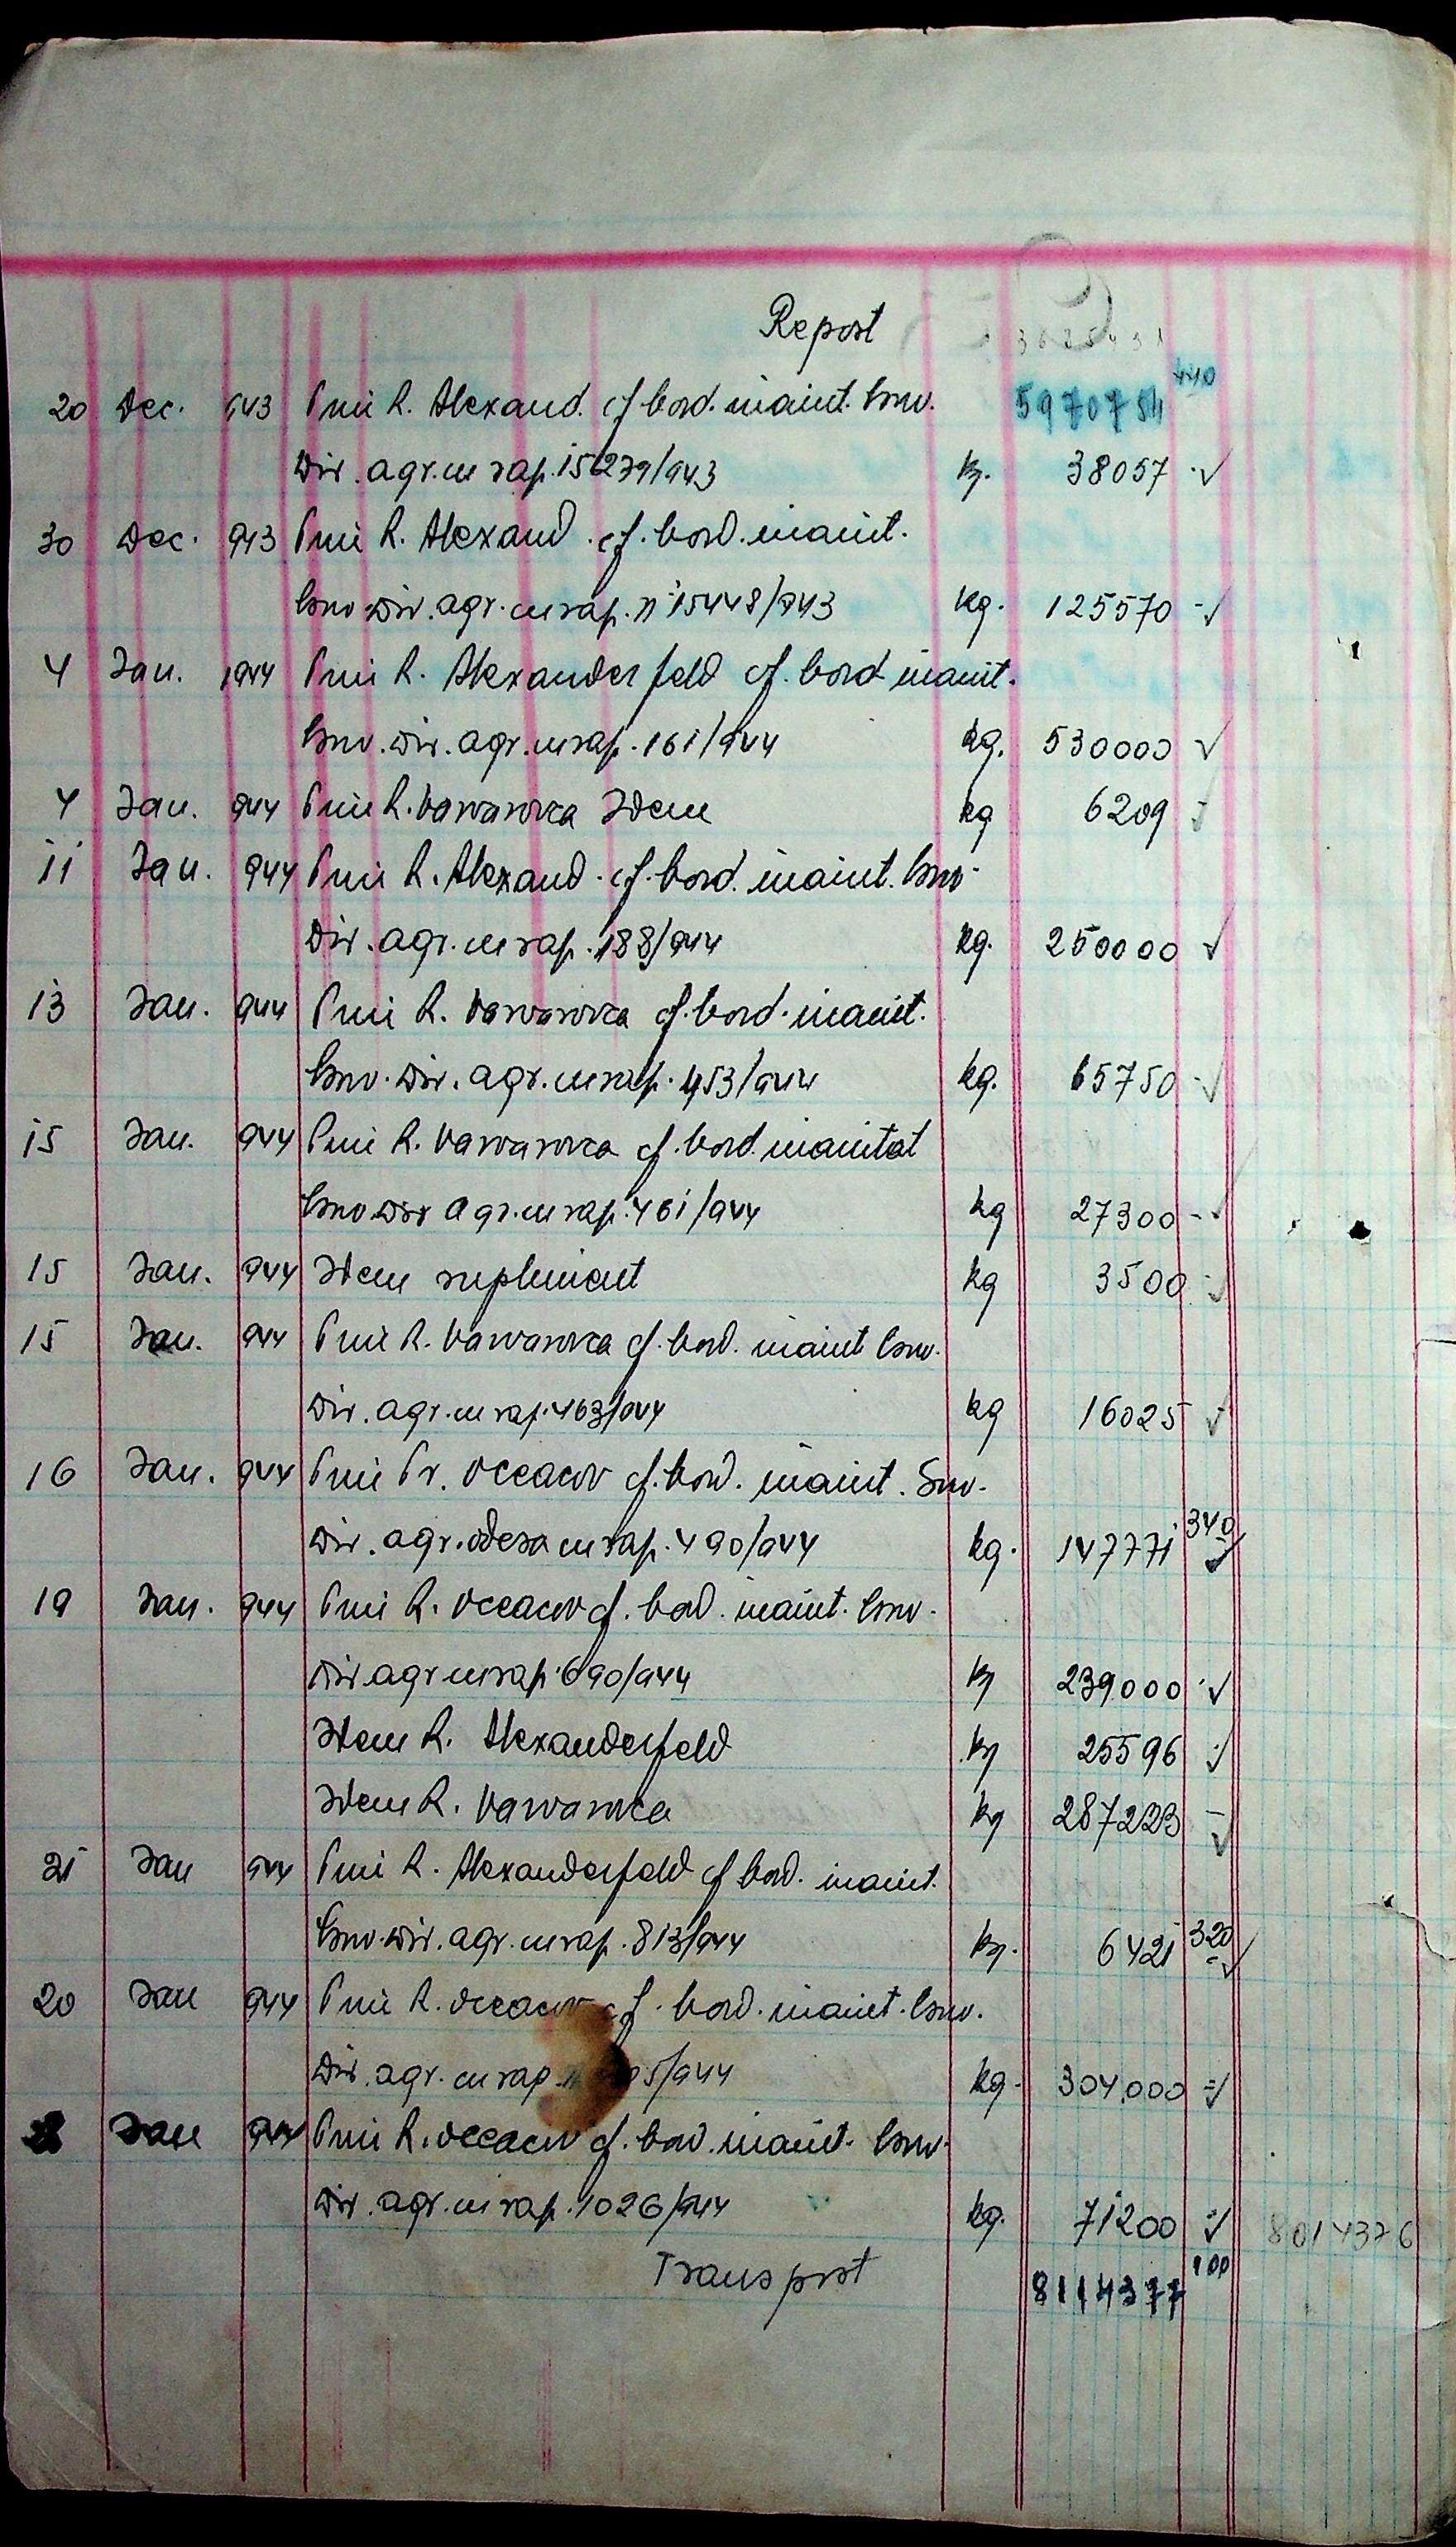 Report
20 Dec. 943 Prin R. Alexand. cf bord. inaint. Guv. 5970754 440
Dir. agr. cu rap. 15279/943 kg. 38057
30 Dec. 943 Prin R. Alexand. cf. bord. inaint.
Guv. Dir. agr. cu rap. n 15448/943 kg. 125570
4 Jan. 1944 Prin R. Alexanderfeld cf. bord inaint.
Guv. Dir. agr. cu rap. 161/944 kg. 530000
4 Jan. 944 Prin R. Varvarovca Idem kg 6209
11 Jan. 944 Prin R. Alexand. cf. bord. inaint. Guv.
Dir. agr. cu rap. 188/944 kg. 250000
13 Jan. 944 Prin R. Varvarovca cf. bord. inaint.
Guv. Dir. agr. cu rap. 453/944 kg. 65750
15 Jan. 944 Prin R. Varvarovca cf. bord. inaintat
Guv Dir agr. cu rap. 461/944 kg 27300
15 Jan. 944 Idem supliment kg 3500
15 Jan. 944 Prin R. Varvarovca cf. bord. inaint Guv.
Dir. agr. cu rap. 463/944 kg 16025
16 Jan. 944 Prin Pr. Oceacov cf. bord. inaint. Guv.
Dir. agr. Odesa cu rap. 490/944 kg. 147771 340
19 Jan. 944 Prin R. Oceacov cf. bord. inaint. Guv.
Dir agr cu rap. 690/944 kg 239000
Idem R. Alexanderfeld kg 25596
Idem R. Varvarovca kg 287223
21 Jan 944 Prin R. Alexanderfeld cf bord. inaint.
Guv. Dir. agr. cu rap. 813/944 kg. 6421 320
20 Jan 944 Prin R. Oceacov cf. bord. inaint. Guv.
Dir. agr. cu rap 5/944 kg. 304.000
Jan 944 Prin R. Oceacov cf. bord. inaint. Guv.
Dir. agr. cu rap. 1026/944 kg. 71200 8014376
Transport 8114377 100